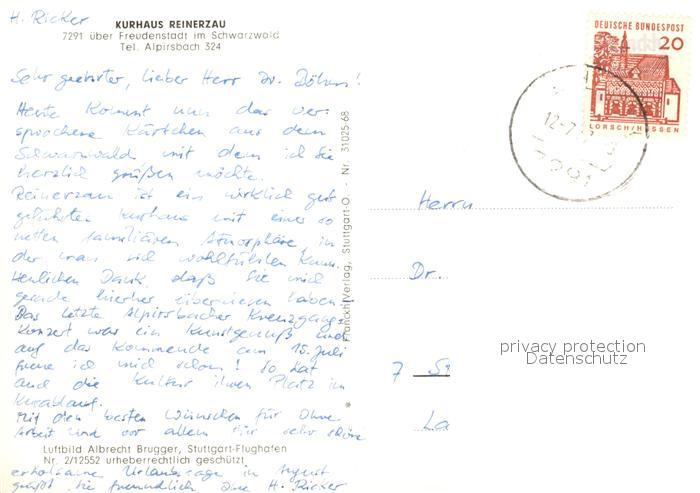 H. Ricker
KURHAUS REINERZAU
7291 über Freudenstadt im Schwarzwald
Tel. Alpirsbach 324
Sehr geehrter, lieber Herr Dr. Böhm!
Heute kommt nun das ver-
sprochene Kärtchen aus dem
Schwarzwald mit dem ich Sie
herzlich grüßen möchte.
Reinerzau ist ein wirklich gut
geführtes Kurhaus mit einer so
netten familiären Atmosphäre, in
der man sich wohlfühlen kann.
Herzlichen Dank, daß Sie mich
gerade hierher überwiesen haben.
Das letzte Alpirsbacher Kreuzgang-
Konzert war ein Kunstgenuß und
auf das Kommende am 15. Juli
freue ich mich schon! So hat
auch die Kultur ihren Platz im
Kurablauf.
Mit den besten Wünschen für
Arbeit und vor allem für sehr schöne
Luftbild Albrecht Brugger, Stuttgart-Flughafen
Nr. 2/12552 urheberrechtlich geschützt
erholsame Urlaubstage im August
grüßt Sie freundlich H. Ricker
Franckh-Verlag, Stuttgart-O. - Nr. 31025-68
DEUTSCHE BUNDESPOST
20
LORSCH/HESSEN
12-7
7291
Herrn
Dr.
7 St
La
privacy protection
Datenschutz